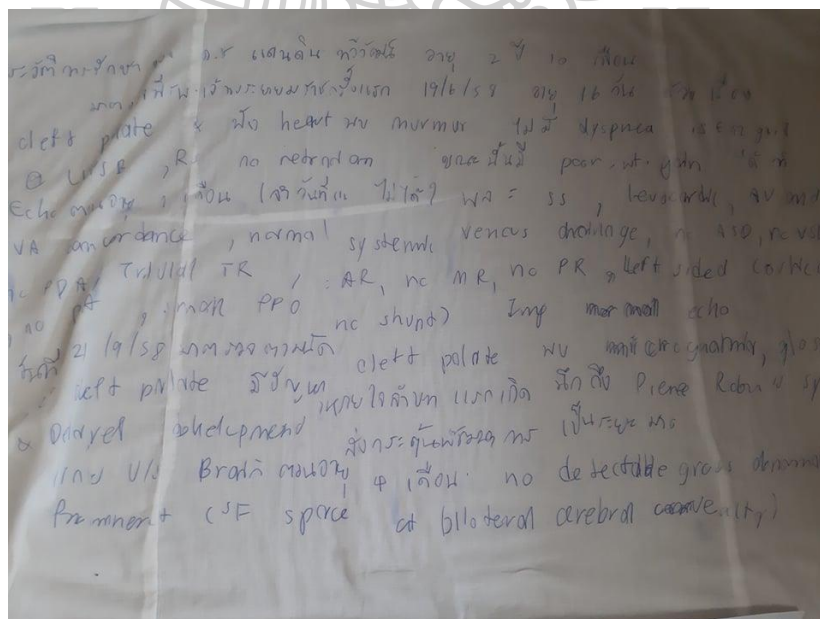 ประวัติการรักษา ด.ช แดนดิน ทวีวัฒน์ อายุ 2 ปี 10 เดือน
19/6/58 อายุ 16 วัน ด้วยเรื่อง
cleft palate & ฟัง heart พบ murmur ไม่มี dyspnea
@ LUSB, R no retraction ขณะนั้นมี poor wt. gain
Echo ตอนอายุ เดือน (จำวันที่ ไม่ได้) ผล = SS, levocardia, AV and
VA concordance, normal systemic venous drainage, no ASD, no VSD
no PDA, Trivial TR, AR, no MR, no PR, left sided
no, small PFO no shunt) Imp normal echo
วันที่ 21/9/58 มาตรวจตามนัด cleft palate พบ micrognathia,
cleft palate มีปัญหา หายใจลำบาก แรกเกิด นึกถึง Pierre Robin
& Delayed development ส่งกระตุ้นพัฒนาการ เป็นระยะ
เคย U/S Brain ตอนอายุ 4 เดือน no detectable gross
Prominent CSF space at bilateral cerebral convexity)